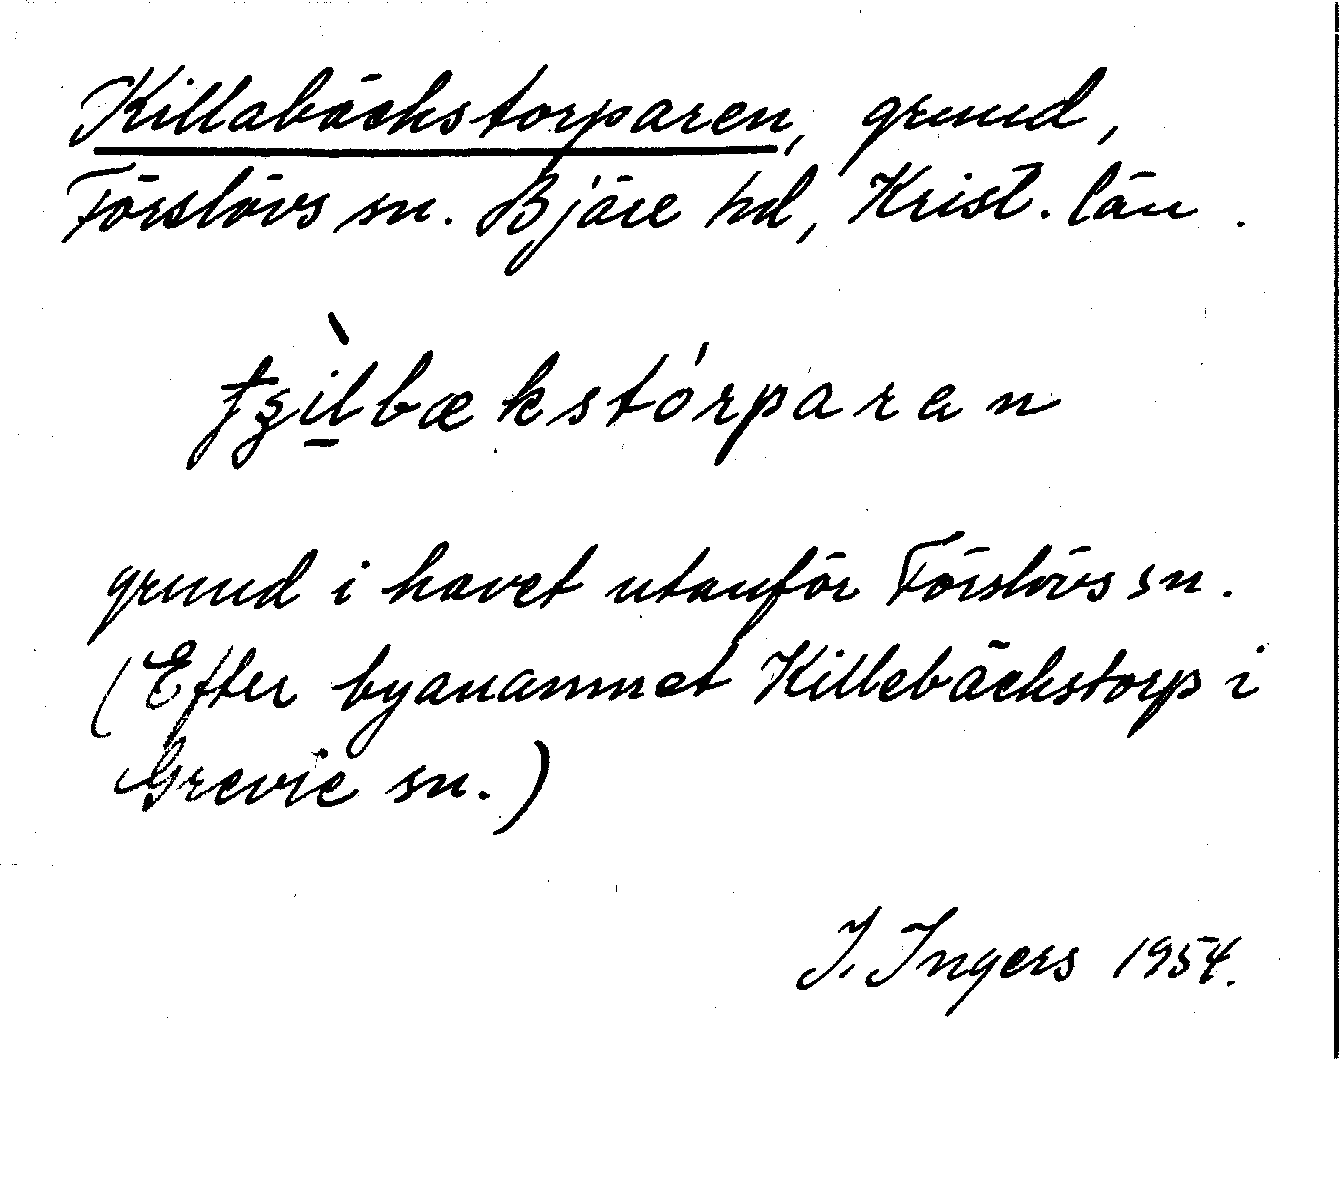 Killabäckstorparen, grund,
Förslövs sn. Bjäre hd, Krist. län.
grund i havet utanför Förslövs sn.
(Efter bynamnet Killebäckstorp i
Grevie sn.)
I. Ingers 1954.